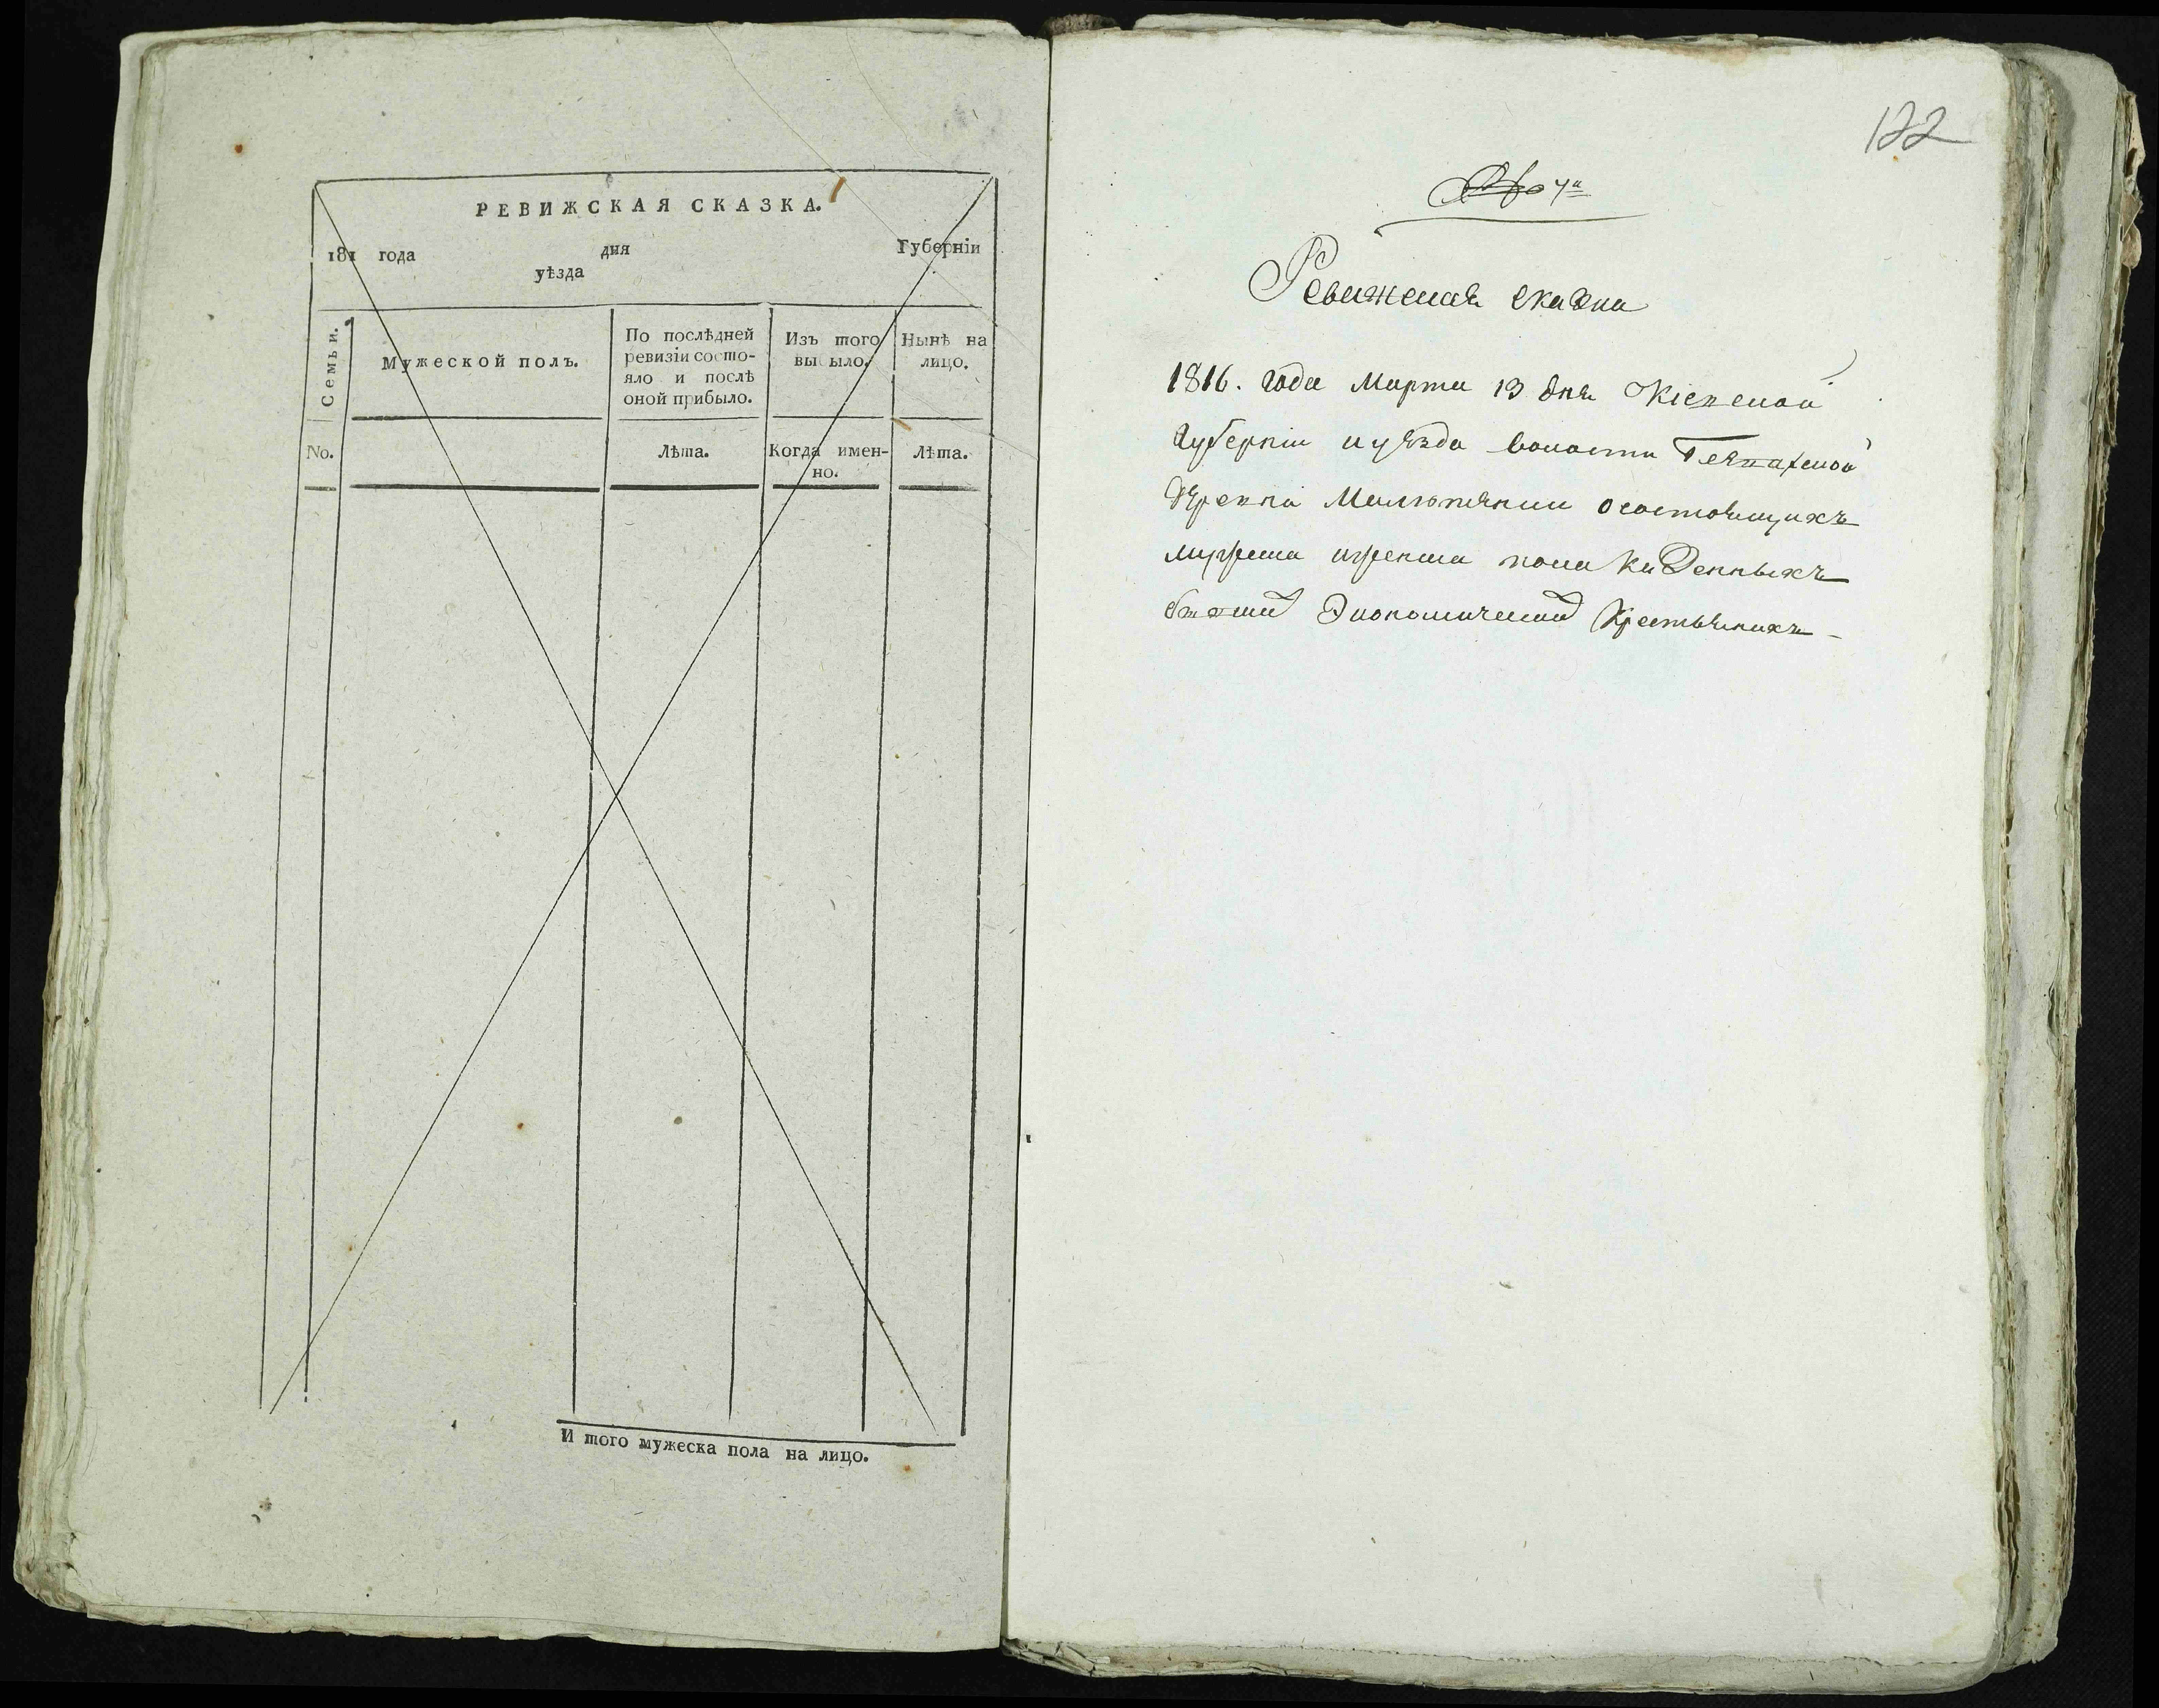 РЕВИЖСКАЯ СКАЗКА.
181 года дня Губерніи
уѣзда
Семьи.
Мужеской полъ.
По послѣдней ревизіи состо-
яло и послѣ оной прибыло.
Изъ того выбыло.
Нынѣ на лицо.
No.
Лѣта.
Когда имен-
но.
Лѣта.
И того мужеска пола на лицо.
122
Ревижская скаска
1816. года Марта 13 дня Кіевской
Губерніи и уѣзда волости
Деревни о состоящихъ
мужеска и женска пола Казенныхъ
Экономической Крестьянахъ